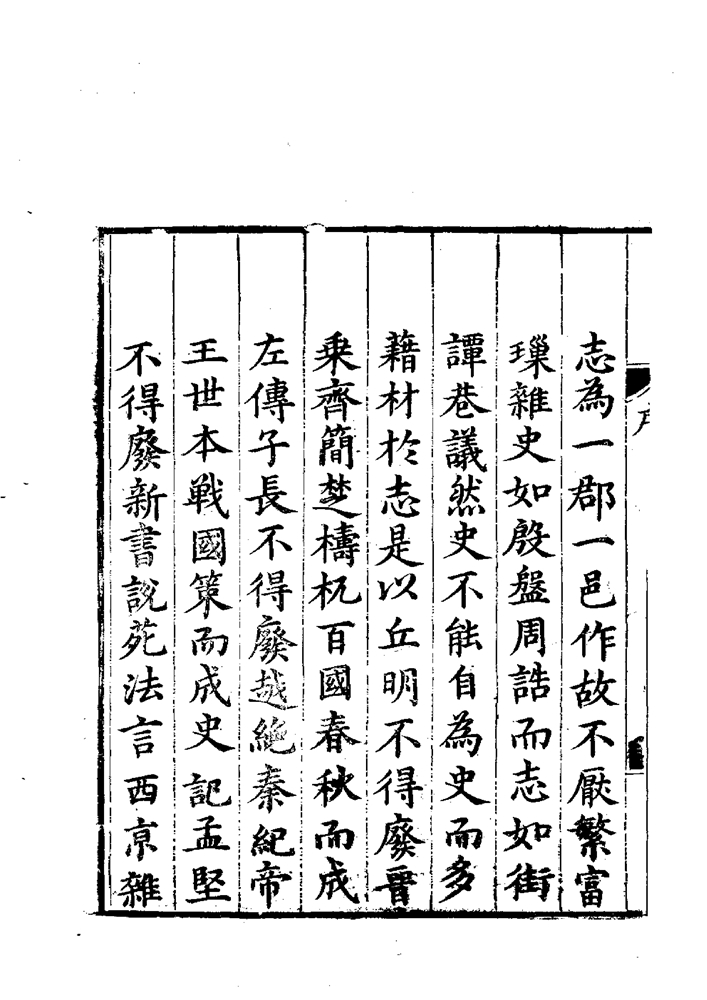 志為一郡一邑作故不厭繁富
璅雜史如殷盤周誥而志如街
譚巷議然史不能自為史而多
藉材於志是以丘明不得廢晉
乗齊簡楚檮杌百國春秋而成
左傳子長不得廢越絶秦紀帝
王世本戰國策而成史記孟堅
不得廢新書說苑法言西京雜